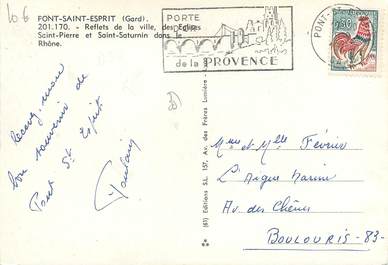 106
FONT-SAINT-ESPRIT (Gard).
201.170. - Reflets de la ville, des Eglises
Saint-Pierre et Saint-Saturnin dans le
Rhône.
PORTE
de la PROVENCE
PONT-
0,30
bon souvenir de
Pont St Esprit
(61) Editions S.L. 157, Av. des Frères Lumière - 
**
Mme et Mlle Février
Av. des Chênes
BOULOURIS - 83 -